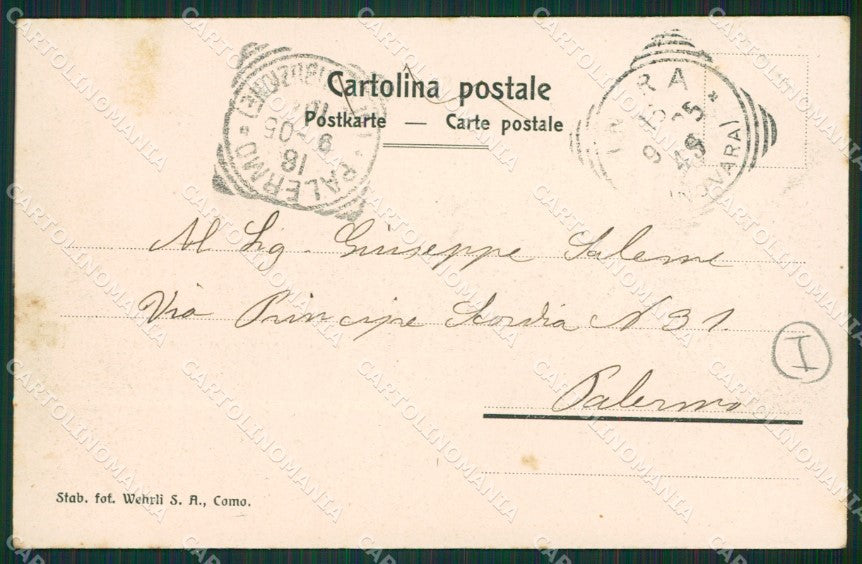 Cartolina postale
Postkarte — Carte postale
PALERMO
18
9-05
INTRA
(NOVARA)
Al Sig. Giuseppe Salerni
Via Principe Scordia N 31
Palermo
I
Stab. fot. Wehrli S. A., Como.
CARTOLINOMANIA